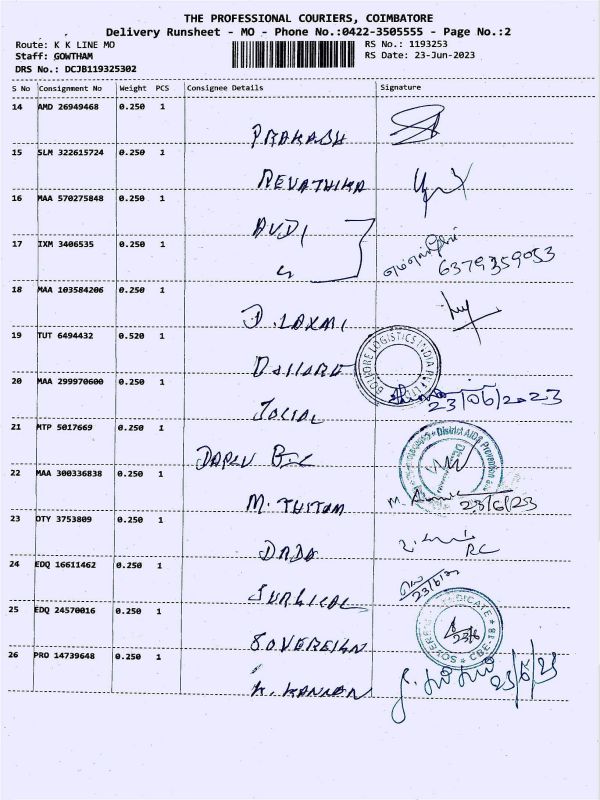 THE PROFESSIONAL COURIERS, COIMBATORE
Delivery Runsheet - MO - Phone No.:0422-3505555 - Page No.:2
Route: K K LINE MO
RS No.: 1193253
Staff: GOWTHAM
RS Date: 23-Jun-2023
DRS No.: DCJB119325302
S No Consignment No Weight PCS Consignee Details Signature
14 AMD 26949468 0.250 1
PRAKASH
15 SLM 322615724 0.250 1
REVATHIKA
16 MAA 570275848 0.250 1
AVDI
17 IXM 3406535 0.250 1
6379359053
18 MAA 103584206 0.250 1
D. LAXMI
19 TUT 6494432 0.520 1
BOLLORE LOGISTICS INDIA PVT LTD
20 MAA 299970600 0.250 1
23/06/2023
SOCIAL
21 MTP 5017669 0.250 1
District AIDS Prevention
22 MAA 300336838 0.250 1
23/6/23
M.
23 OTY 3753809 0.250 1
RC
DADA
24 EDQ 16611462 0.250 1
SURGICAL
25 EDQ 24570016 0.250 1
SOVEREIGN SYNDICATE CBE-18
23/6
SOVEREIGN
26 PRO 14739648 0.250 1
K. KANNAN
23/6/23